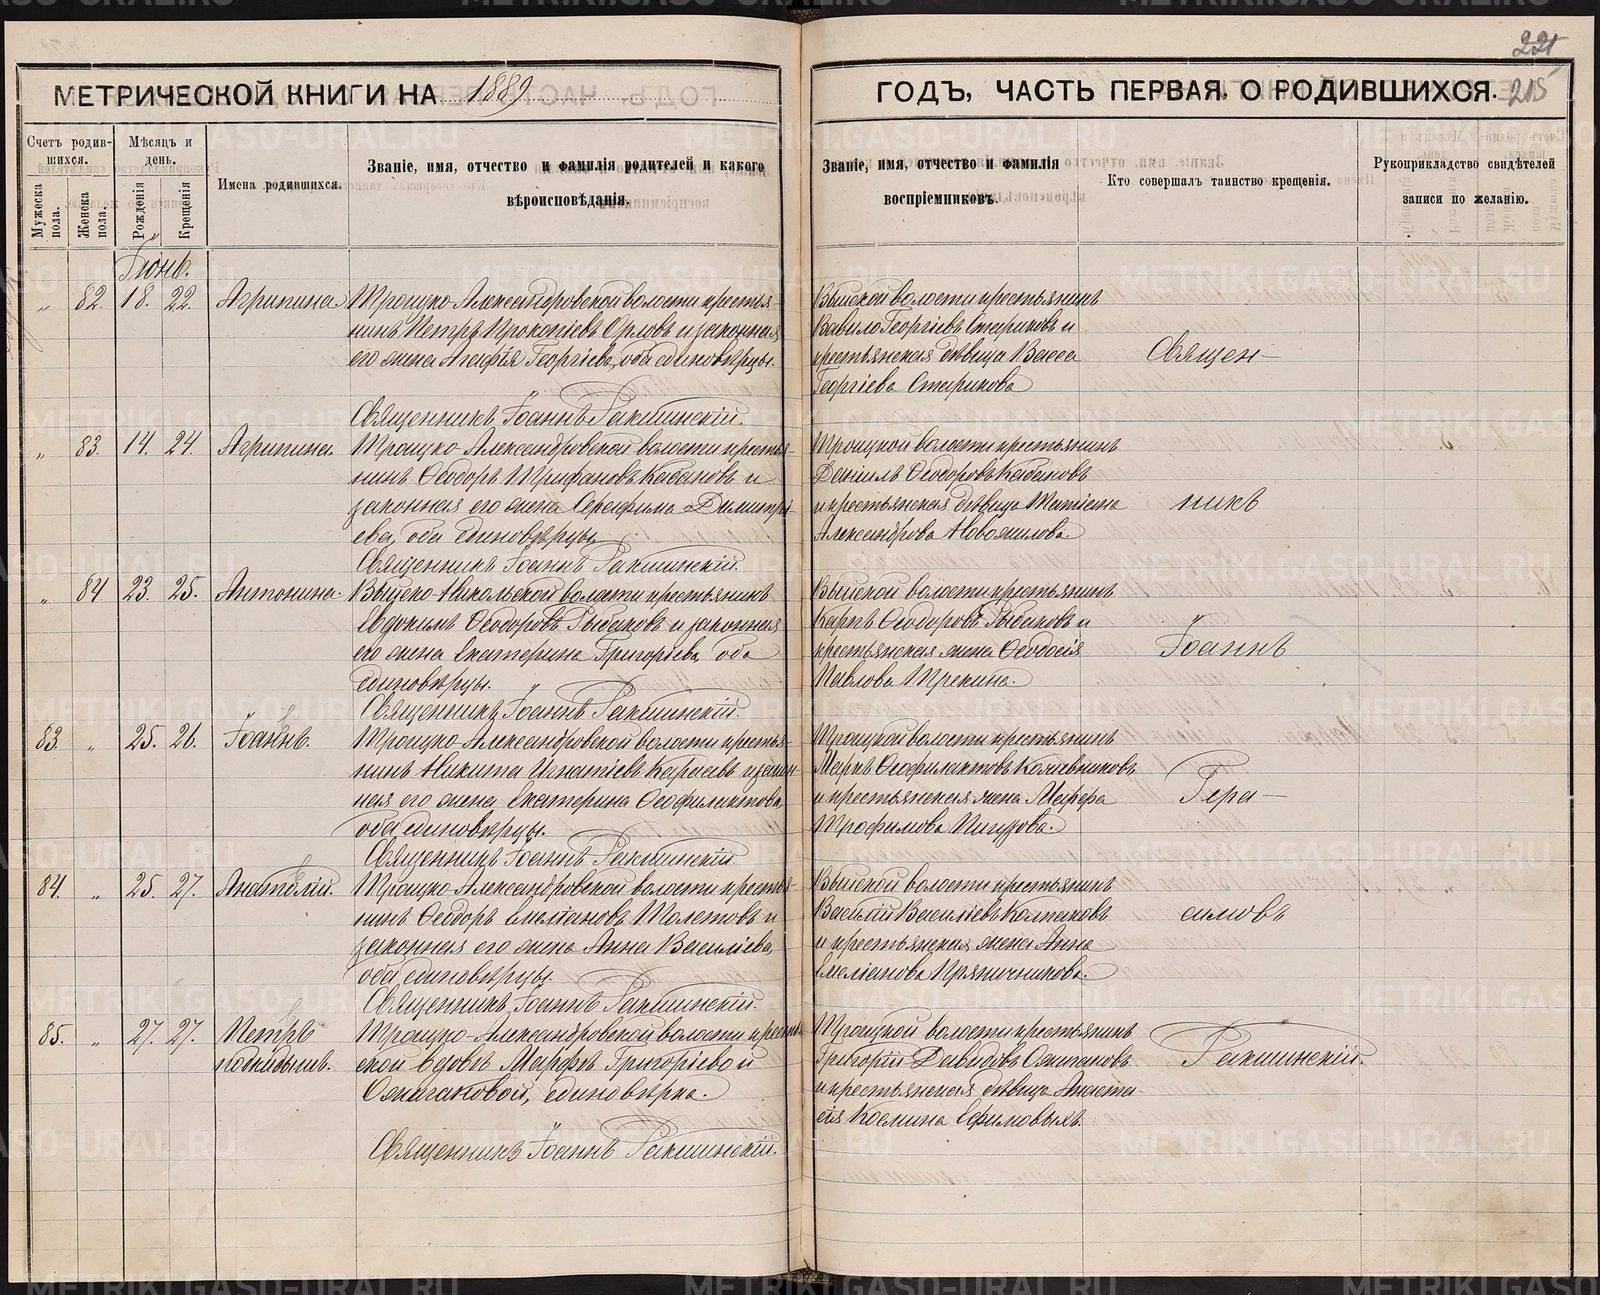 221
215
МЕТРИЧЕСКОЙ КНИГИ НА 1889
ГОДЪ, ЧАСТЬ ПЕРВАЯ, О РОДИВШИХСЯ.
Счетъ родив-
шихся.
Мужеска
пола.
Женска
пола.
Мѣсяцъ и
день.
Рожденія
Крещенія
Имена родившихся.
Званіе, имя, отчество и фамилія родителей и какого
вѣроисповѣданія.
Званіе, имя, отчество и фамилія
воспріемниковъ.
Кто совершалъ таинство крещенія.
Рукоприкладство свидѣтелей
записи по желанію.
Іюнь.
„ 82. 18. 22. Агрипина. Троицко-Александровской волости крестья-
нинъ Петръ Прокопіевъ Орловъ и законная
его жена Агафія Георгіева, оба единовѣрцы.
Священникъ Іоаннъ Ракшинскій.
Выйской волости крестьянинъ
Вавило Георгіевъ Стариковъ и
крестьянская дѣвица Васса
Георгіева Старикова
„ 83. 14. 24. Агрипина. Троицко-Александровской волости крестья-
нинъ Ѳеодоръ Трифановъ Кабаковъ и
законная его жена Серафима Димитрі-
ева, оба единовѣрцы
Священникъ Іоаннъ Ракшинскій.
Троицкой волости крестьянинъ
Даніилъ Ѳеодоровъ Кабаковъ
и крестьянская дѣвица Татіана
Александрова Новожилова.
„ 84. 23. 25. Антонина. Выйско-Никольской волости крестьянинъ
Евдокимъ Ѳеодоровъ Рыбаковъ и законная
его жена Екатерина Григорьева, оба
единовѣрцы.
Священникъ Іоаннъ Ракшинскій.
Выйской волости крестьянинъ
Карпъ Ѳеодоровъ Рыбаковъ и
крестьянская жена Ѳеодосія
Павлова Трекина.
83. „ 25. 26. Іоаннъ. Троицко-Александровской волости крестья-
нинъ Никита Игнатіевъ Карасевъ и закон-
ная его жена Екатерина Ѳеофилактова,
оба единовѣрцы.
Священникъ Іоаннъ Ракшинскій
Троицкой волости крестьянинъ
Маркъ Ѳеофилактовъ Кожевниковъ
и крестьянская жена Марфа
Трофимова
84. „ 25. 27. Анатолій. Троицко-Александровской волости крестья-
нинъ Ѳеодоръ Емеліановъ Толстовъ и
законная его жена Анна Василіева,
оба единовѣрцы.
Священникъ Іоаннъ Ракшинскій.
Выйской волости крестьянинъ
Василій Василіевъ Колтаковъ
и крестьянская жена Анна
Емеліанова Пряничникова.
85. „ 27. 27. Петръ
подкидышъ.
Троицко-Александровской волости крестьян-
ской вдовѣ Марфѣ Григоріевой
Ожигановой, единовѣрка.
Священникъ Іоаннъ Ракшинскій.
Троицкой волости крестьянинъ
Григорій Давидовъ Ожигановъ
и крестьянская дѣвица Анаста-
сія Космина Ефимовыхъ.
Священ-
никъ
Іоаннъ
Гера-
симовъ
Ракшинскій.
METRIKI.GASO-URAL.RU